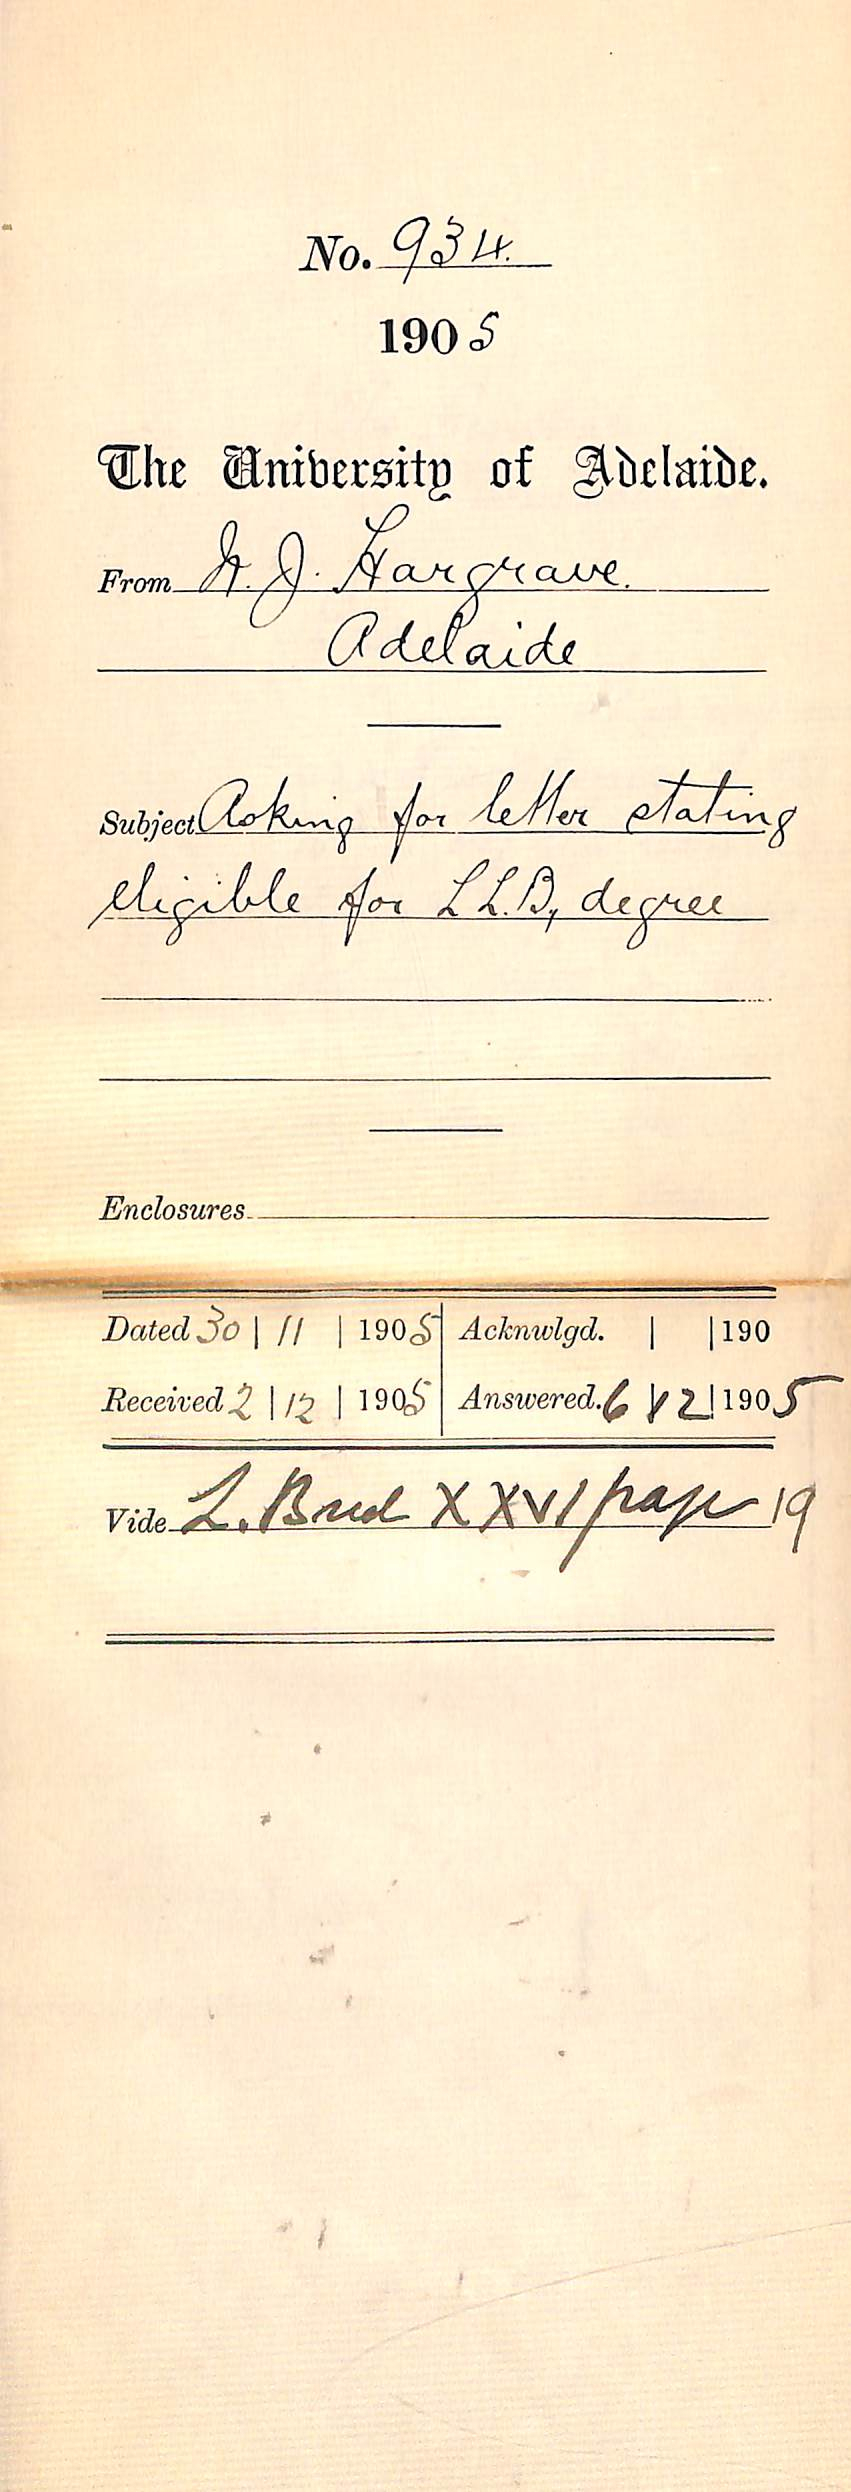 No. 934.
1905
The University of Adelaide.
From J. Hargrave.
Adelaide
Subject Asking for letter stating
eligible for LL.B, degree
Enclosures
Dated 30 | 11 | 1905 Acknwlgd. | | 190
Received 2 | 12 | 1905 Answered. 6 | 12 | 1905
Vide L. XXVI page 19